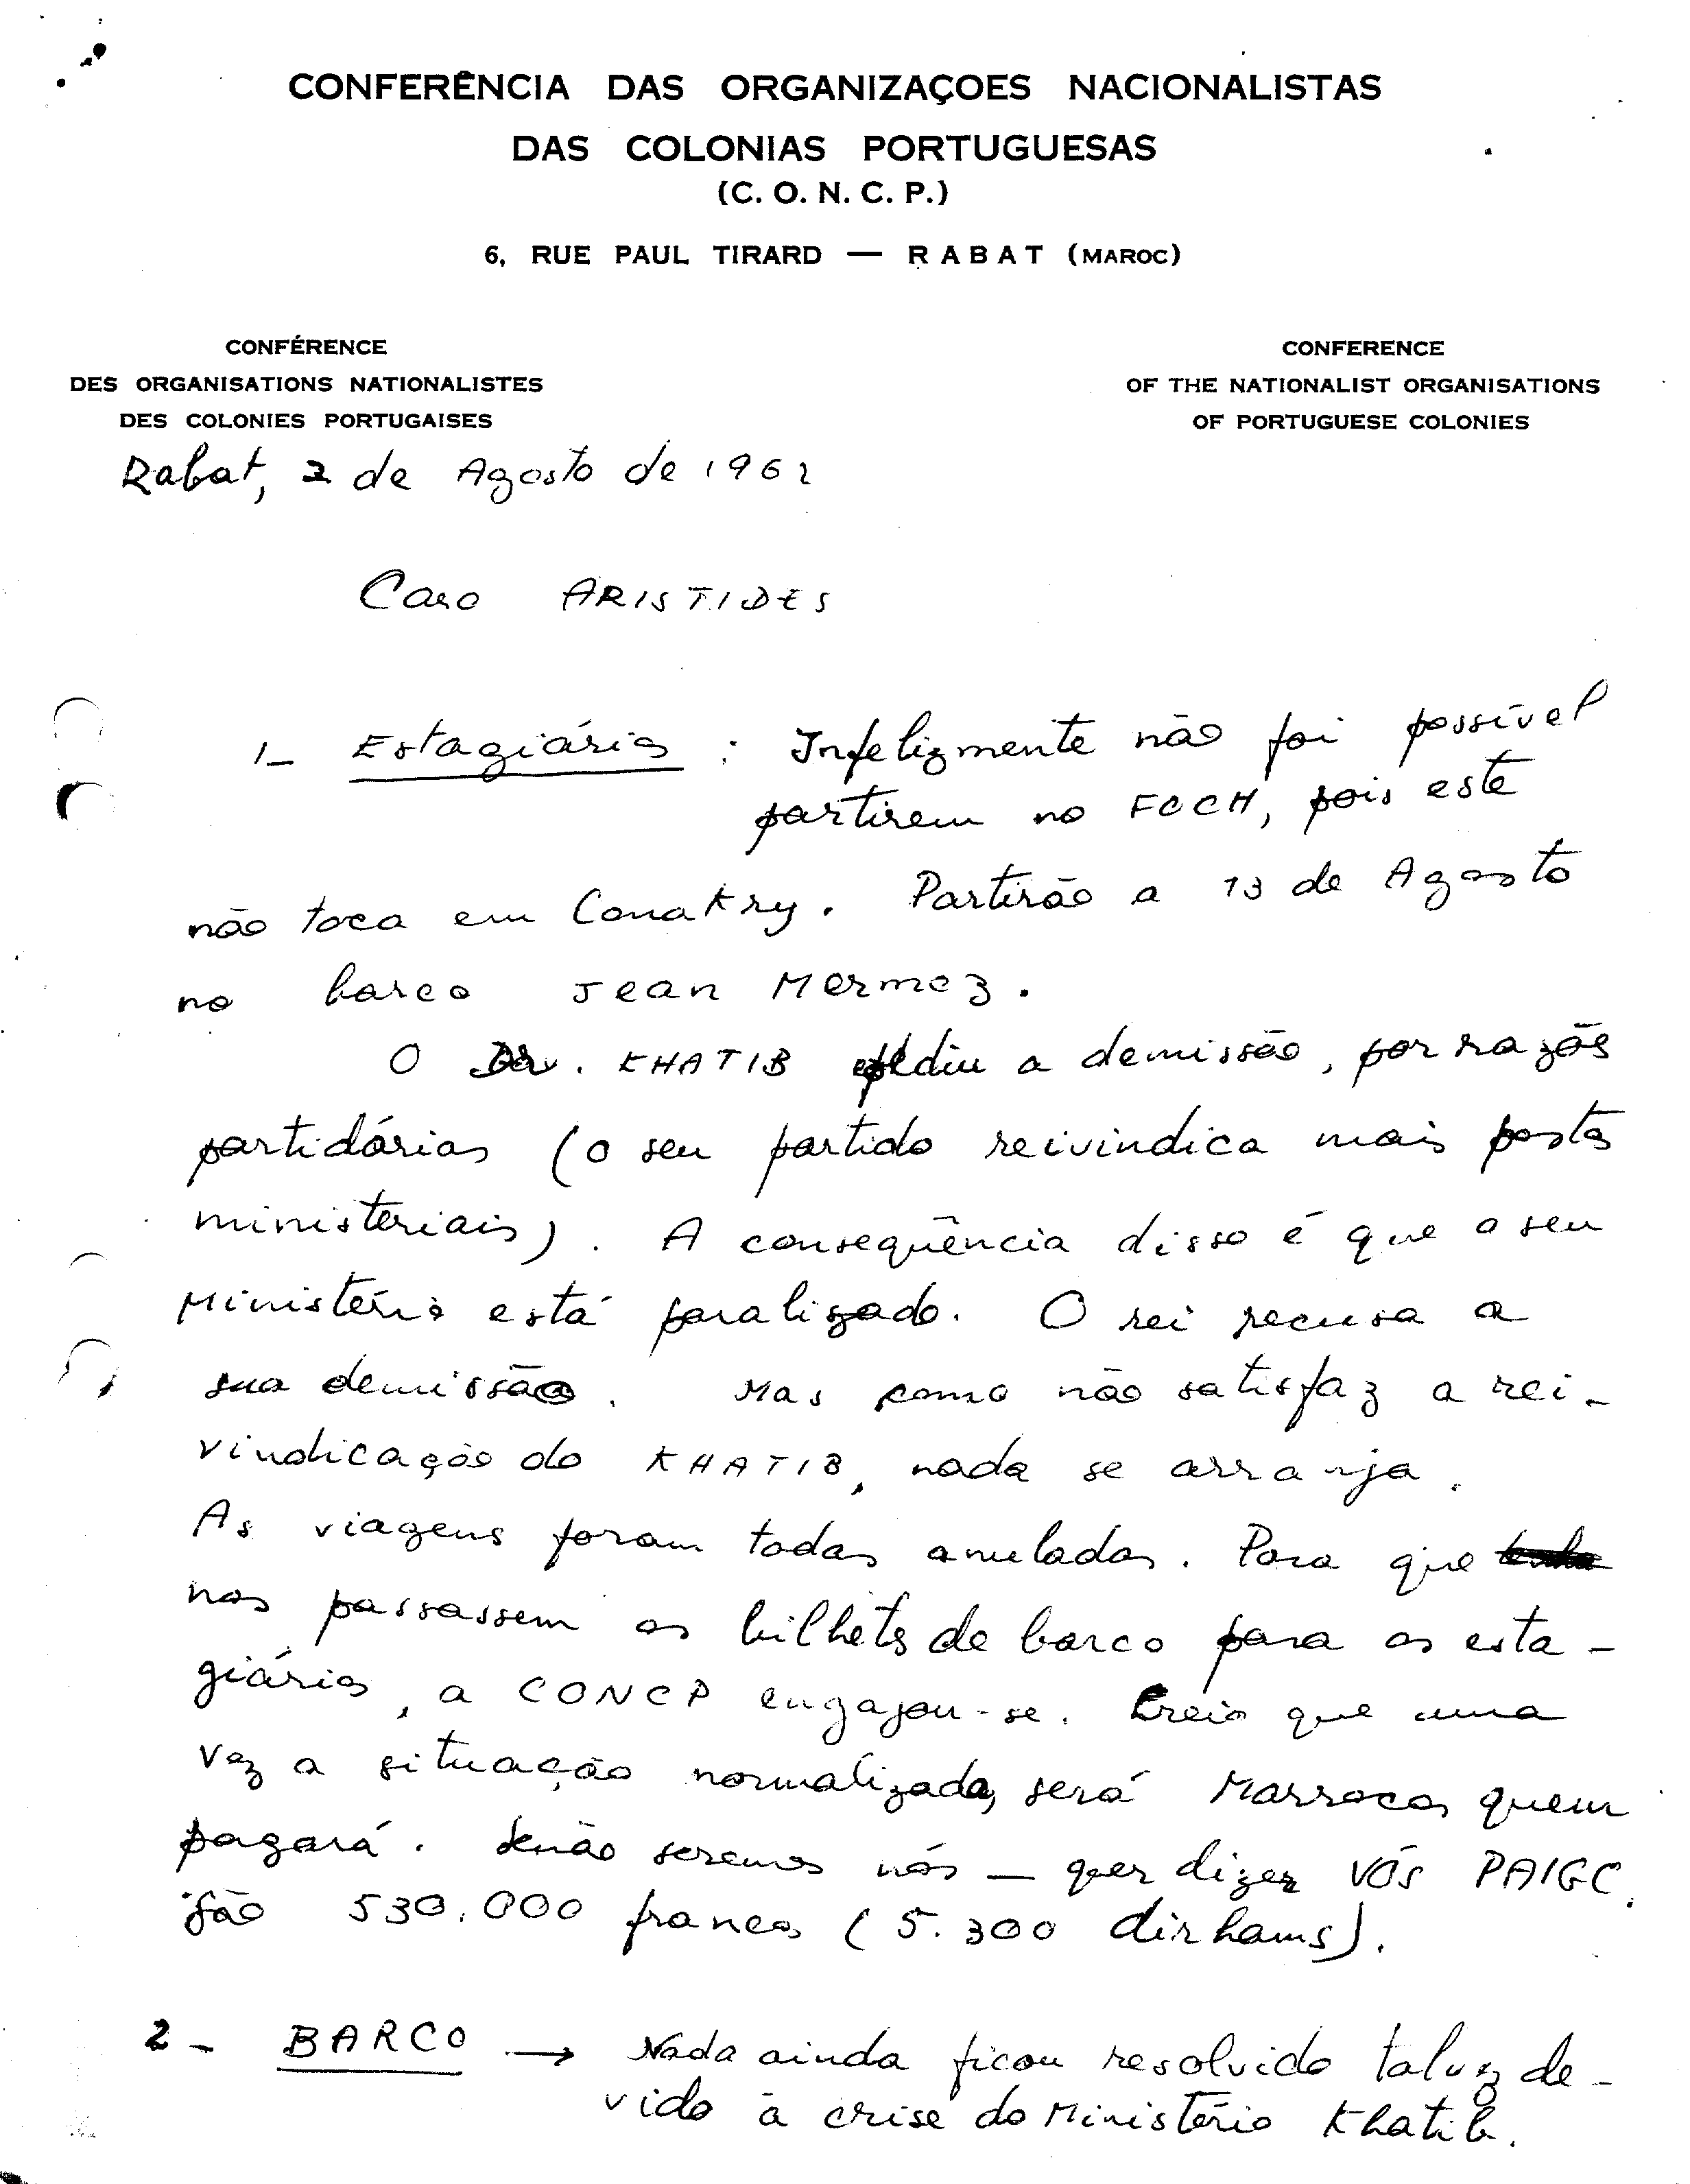 CONFERÊNCIA DAS ORGANIZAÇOES NACIONALISTAS
DAS COLONIAS PORTUGUESAS
(C. O. N. C. P.)
6, RUE PAUL TIRARD — RABAT (MAROC)
CONFÉRENCE
DES ORGANISATIONS NATIONALISTES
DES COLONIES PORTUGAISES
CONFERENCE
OF THE NATIONALIST ORGANISATIONS
OF PORTUGUESE COLONIES
Rabat, 2 de Agosto de 1962
Caro ARISTIDES
1- Estagiários : Infelizmente não foi possível
partirem no FOCH, pois este
não toca em Conakry. Partirão a 13 de Agosto
no barco Jean Mermoz.
O Dr. KHATIB pediu a demissão, por razões
partidárias (o seu partido reivindica mais postos
ministeriais). A consequência disso é que o seu
Ministério está paralizado. O rei recusa a
sua demissão. Mas como não satisfaz a rei-
vindicação do KHATIB, nada se arranja.
As viagens foram todas anuladas. Para que
nos passassem os bilhetes de barco para os esta-
giários, a CONCP engajou-se. Creio que uma
vez a situação normalizada, será Marrocos quem
pagará. Senão seremos nós — quer dizer VÓS PAIGC.
São 530.000 francos (5.300 dirhams).
2 - BARCO → Nada ainda ficou resolvido talvez de-
vido à crise do Ministério Khatib.